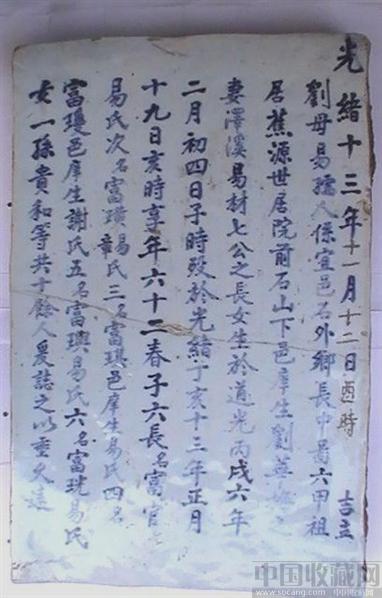 光緒十三年十一月十二日酉時 吉立
劉母易孺人係宜邑石外鄉長中啚六甲祖
居蕉源世居院前石山下邑庠生劉
妻澤溪易材七公之長女生於道光丙戌六年
二月初四日子時殁於光緒丁亥十三年正月
十九日亥時享年六十二春子六長名富官
易氏次名富璜易氏三名富琪邑庠生易氏四名
富瓊邑庠生謝氏五名富璵易氏六名富珖易氏
女一孫貴和等共十餘人爰誌之以垂久遠
中国收藏网
www.socang.com 中国收藏网